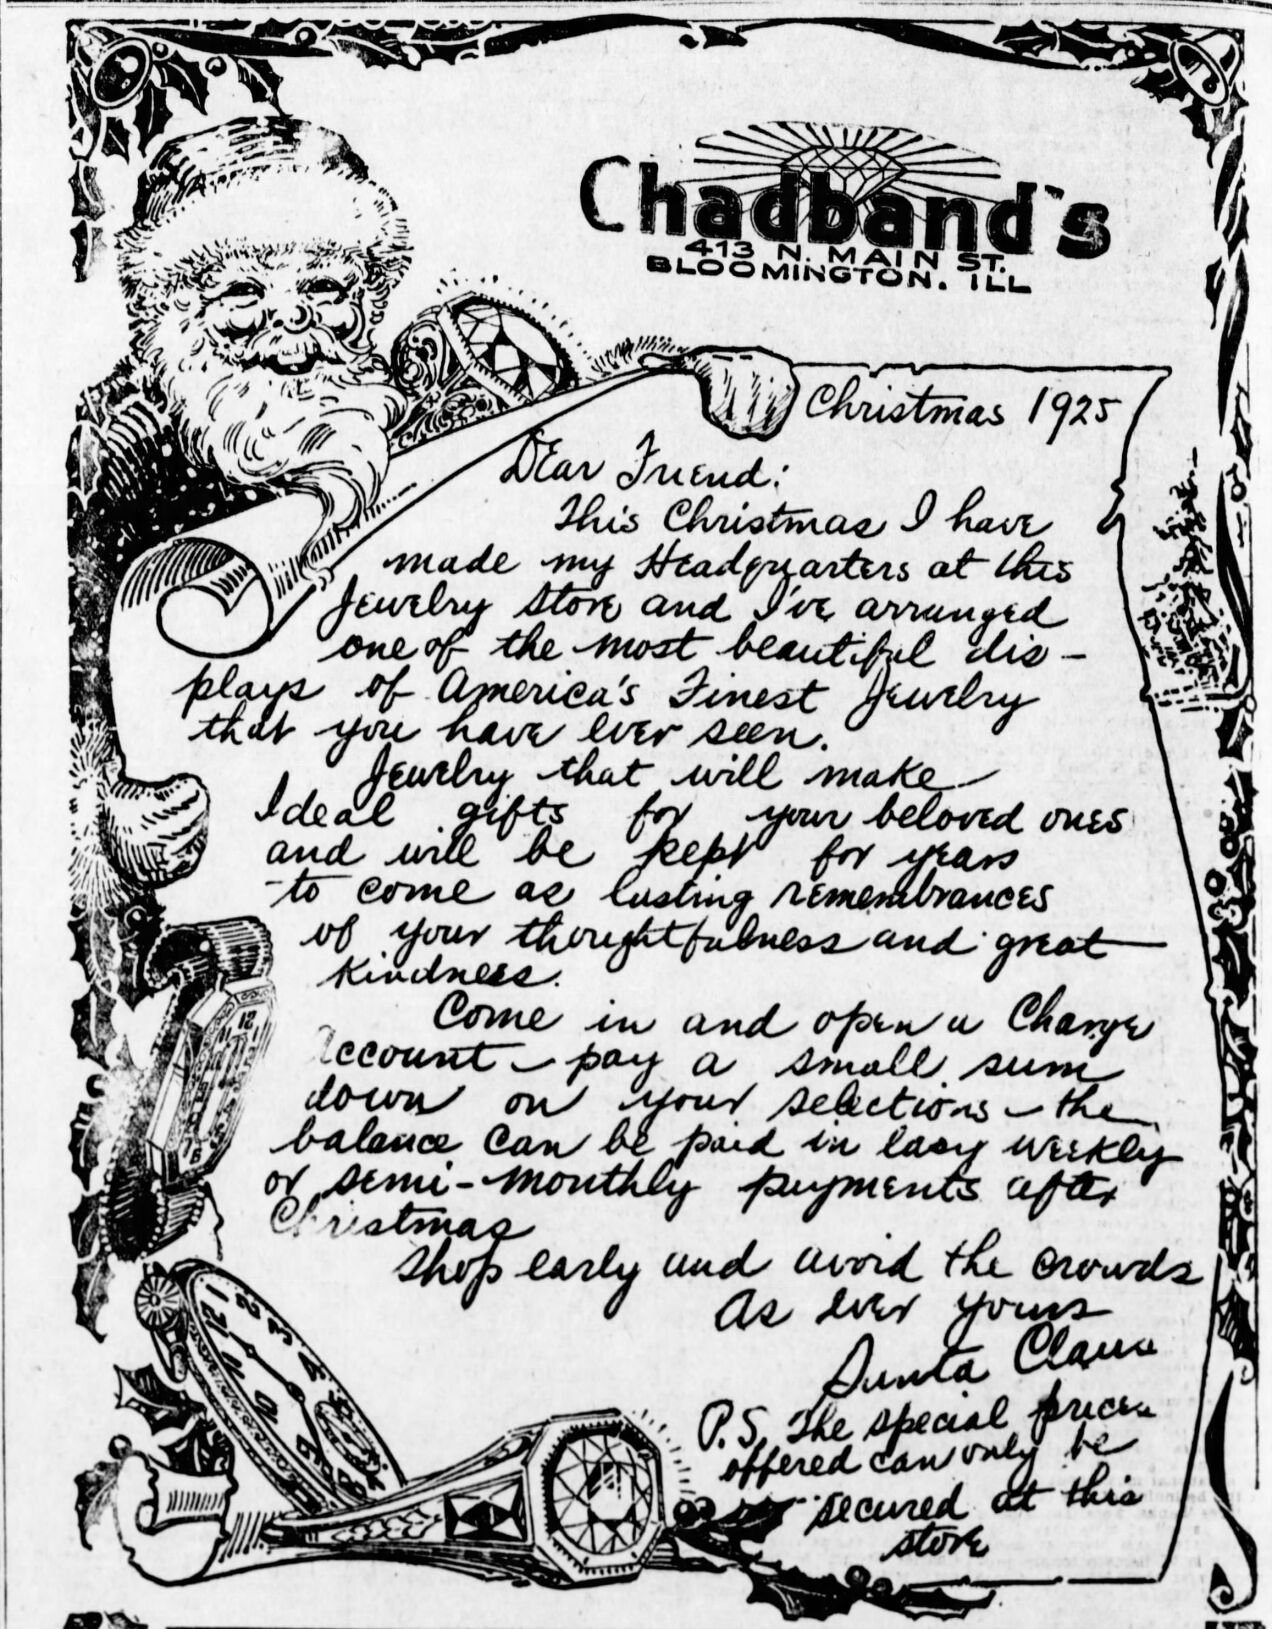 Chadband's
413 N. MAIN ST.
BLOOMINGTON. ILL
Christmas 1925
Dear Friend:
This Christmas I have
made my Headquarters at this
Jewelry Store and I've arranged
one of the most beautiful dis-
plays of America's Finest Jewelry
that you have ever seen.
Jewelry that will make
Ideal gifts for your beloved ones
and will be kept for years
to come as lasting remembrances
of your thoughtfulness and great
kindness.
Come in and open a Charge
Account - pay a small sum
down on your selections - the
balance can be paid in easy weekly
or semi-monthly payments after
Christmas
Shop early and avoid the crowds
As ever yours
Santa Claus
P.S. The special prices
offered can only be
secured at this
store